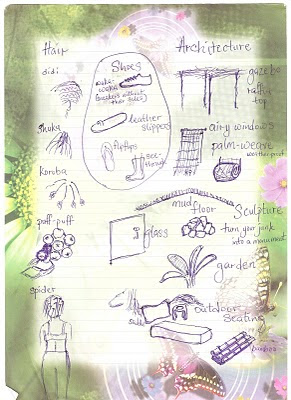 Hair
didi
shuku
Koroba
puff-puff
spider
Shoes
leather
slippers
flipflops
Architecture
gazebo
raffia
top
airy windows
palm-weave
weatherproof
mud
floor
glass
Sculpture
Turn your junk
into a monument
garden
outdoor
Seating
bamboo